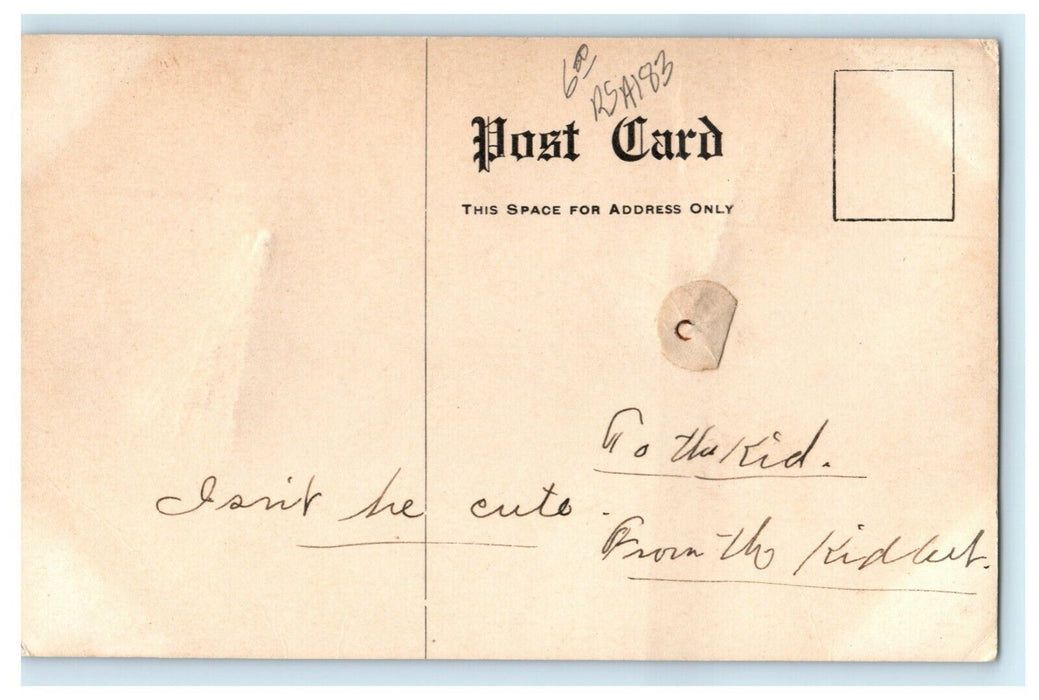 6⁰⁰
RSA183
Post Card
THIS SPACE FOR ADDRESS ONLY
To the Kid.
Isn't he cute.
From the Kidlet.